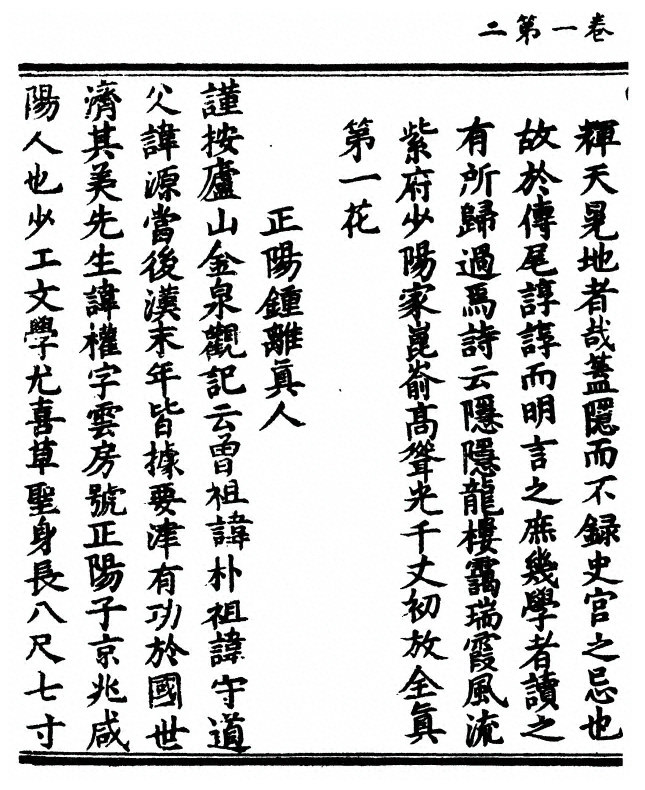 卷一第二
輝天晃地者哉蓋隱而不録史官之忌也
故於傳尾諄諄而明言之庶幾學者讀之
有所歸過焉詩云隱隱龍樓靄瑞霞風流
紫府少陽家崑崙高聳光千丈初放全眞
第一花
正陽鍾離眞人
謹按廬山金泉觀記云曽祖諱朴祖諱守道
父諱源當後漢末年皆據要津有功於國世
濟其美先生諱權字雲房號正陽子京兆咸
陽人也少工文學尤喜草聖身長八尺七寸